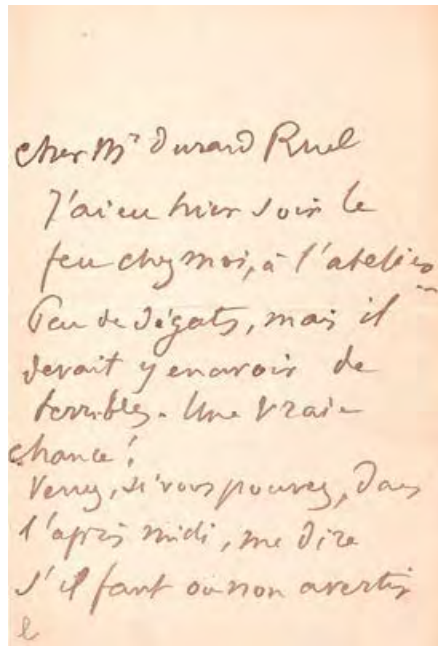 cher Mr Durand Ruel
J'ai eu hier soir le
feu chez moi, à l'atelier
Peu de dégats, mais il
devait y en avoir de
terribles. Une vraie
chance!
Venez, si vous pouvez, dans
l'après midi, me dire
s'il faut ou non avertir